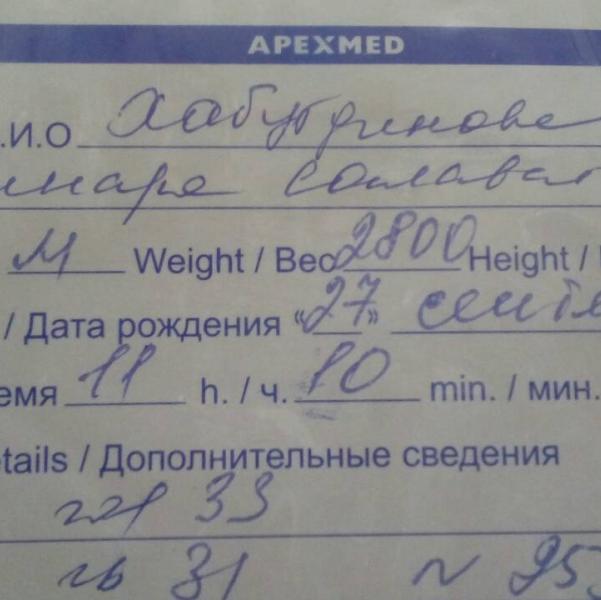 APEXMED
.И.О Хабутдинова
инара Салават
М Weight / Вес 2800 Height /
/ Дата рождения «27» сентя
емя 11 h. / ч. 10 min. / мин.
etails / Дополнительные сведения
гол 33
гр 31 N 953